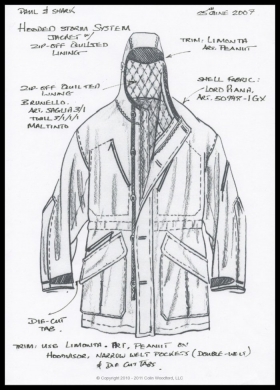 PAUL & SHARK
05th JUNE 2007
HOODED STORM SYSTEM
JACKET w/
ZIP-OFF QUILTED
LINING
TRIM: LIMONTA
ART. PEANUT
ZIP-OFF QUILTED
LINING
BRUNELLO.
ART. SAGLIA 3/1
TWILL 5/1/1/1
MALTINTO
SHELL FABRIC:
LORO PIANA,
ART. 50795-1GX
DIE-CUT
TAB.
TRIM: USE LIMONTA. ART. PEANUT ON
HOOD/VISOR, NARROW WELT POCKETS (DOUBLE-WELT)
& DIE CUT TABS.
© Copyright 2010 - 2015 Colin Woodford, LLC